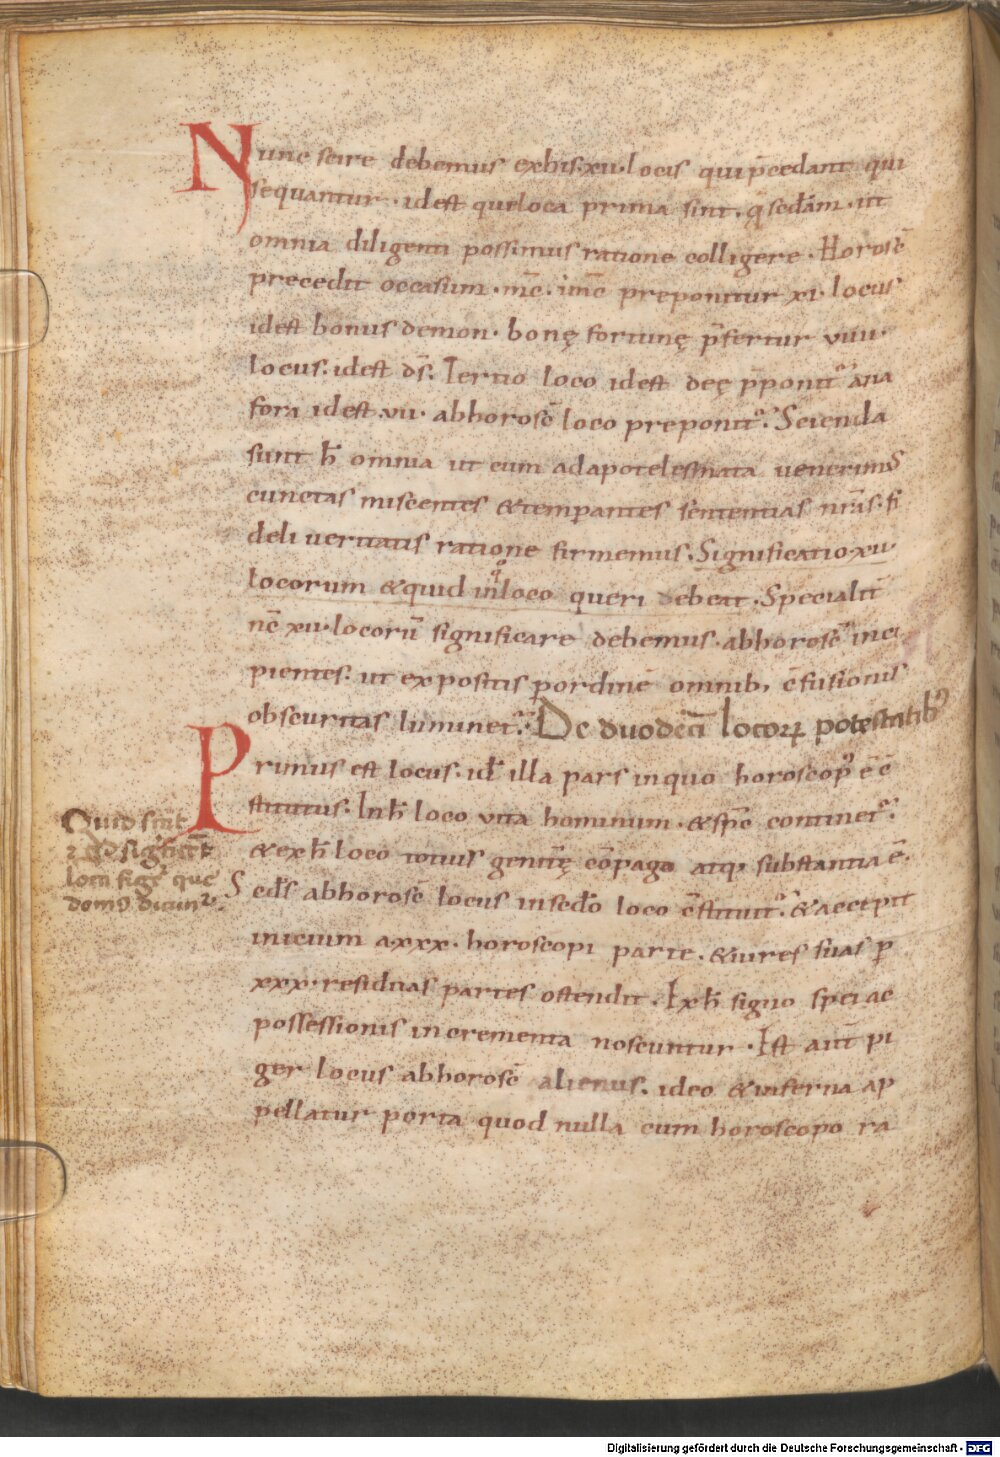 Nunc scire debemus exhis·xii·locis qui p̄cedant qui
sequantur·idest qui loca prima sint·q̄ sed̄am·ut
omnia diligenti possimus ratione colligere·Horosc̄
precedit occasum·mc̄·imc̄ preponitur xi·locus
idest bonus demon·bonę fortunę p̄fertur viiii·
locus·idest d̄s·Tertio loco idest deę p̄ponit̉ ana
fora idest·vii·abhorosc̄ loco preponit̉·Scienda
sunt h̄ omnia ut cum adapotelesmata venerim̉
cunctas miscentes &temperantes sententias nr̄as·fi
deli veritatis ratione firmemus·Significatio·xii·
locorum &quid in q̊ loco queri debeat·Specialit̄
nc̄ xii·locorū significare debemus·abhorosc̄ inci
pientes·ut expositis p ordinē omnib; c̄fusionis
obscuritas luminet̉·De duodeci̅ locoꝝ potestatib̉
Primus est locus·id̄ illa pars inquo horoscop̉ ē c̄
stitutus·Inh̄ loco vita hominum·&sp̄c continet̉·
&exh̄ loco totius genit̄ę cōpago atq; substantia ē·
Sed̄s abhorosc̄ locus insed̄o loco c̄stituit̉·&accepit
inicium axxx·horoscopi parte·&vires suas p
xxx·residuas partes ostendit·Exh̄ signo spei ac
possessionis incrementa noscuntur·Est aut̄ pi
ger locus abhorosc̄ alienus·ideo &inferna ap
pellatur porta quod nulla cum horoscopo ra
Quid sint
loca
que
dicunt̉
Digitalisierung gefördert durch die Deutsche Forschungsgemeinschaft · DFG